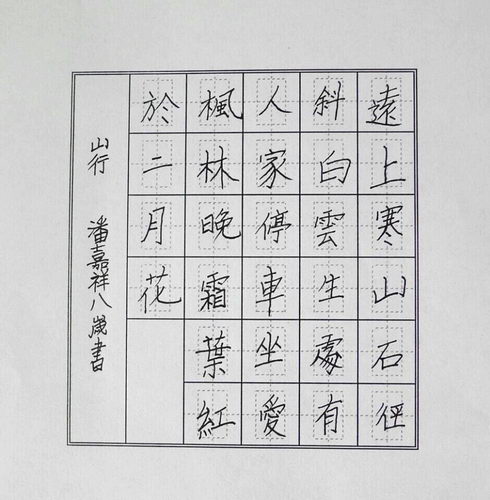 遠上寒山石徑
斜白雲生處有
人家停車坐愛
楓林晚霜葉紅
於二月花
山行 潘嘉祥八歲書